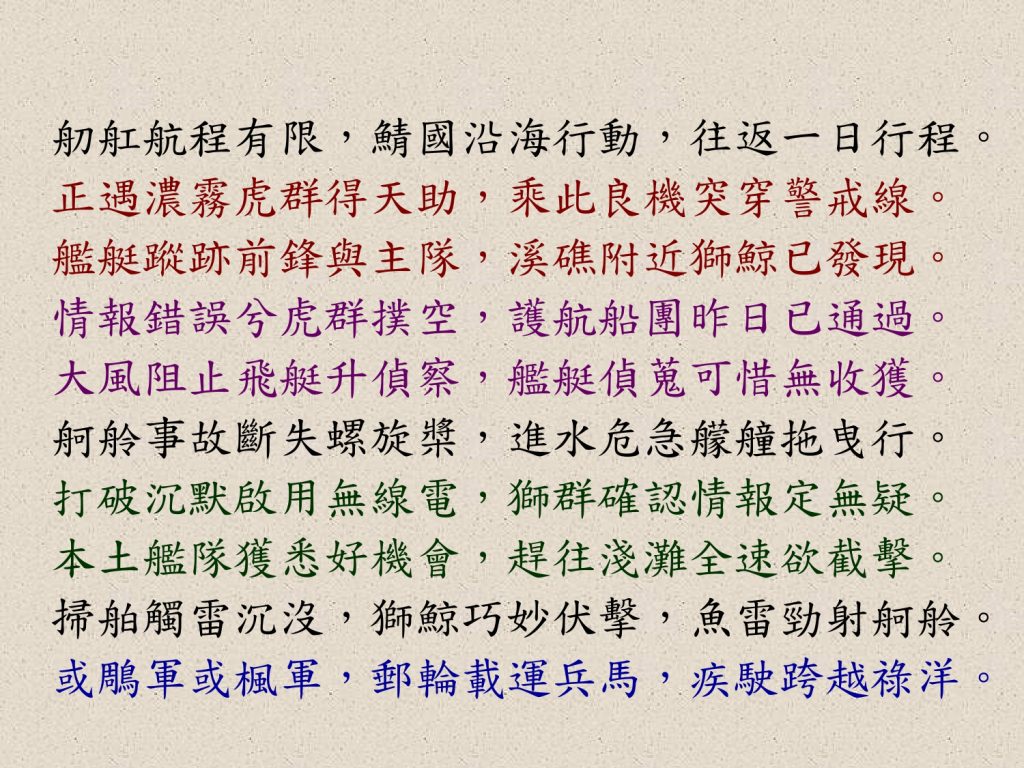 舠舡航程有限，鯖國沿海行動，往返一日行程。
正遇濃霧虎群得天助，乘此良機突穿警戒線。
艦艇蹤跡前鋒與主隊，溪礁附近獅鯨已發現。
情報錯誤兮虎群撲空，護航船團昨日已通過。
大風阻止飛艇升偵察，艦艇偵蒐可惜無收獲。
舸舲事故斷失螺旋槳，進水危急艨艟拖曳行。
打破沉默啟用無線電，獅群確認情報定無疑。
本土艦隊獲悉好機會，趕往淺灘全速欲截擊。
掃舶觸雷沉沒，獅鯨巧妙伏擊，魚雷勁射舸舲。
或鵰軍或楓軍，郵輪載運兵馬，疾駛跨越祿洋。